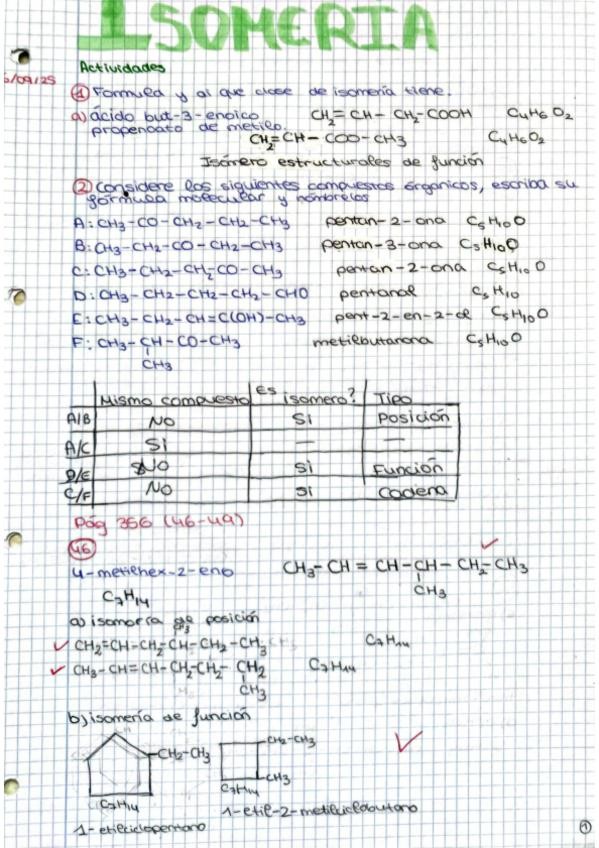 ISOMERIA
/09/25
Actividades
① Formula y di que clase de isomería tiene.
a) ácido but-3-enoico CH2=CH-CH2-COOH C4H6O2
propenoato de metilo. CH2=CH-COO-CH3 C4H6O2
Isómero estructurales de función
② Considere los siguientes compuestos órganicos, escriba su
fórmula molecular y nómbrelos
A: CH3-CO-CH2-CH2-CH3 pentan-2-ona C5H10O
B: CH3-CH2-CO-CH2-CH3 pentan-3-ona C5H10O
C: CH3-CH2-CH2CO-CH3 pentan-2-ona C5H10O
D: CH3-CH2-CH2-CH2-CHO pentanal C5H10
E: CH3-CH2-CH=C(OH)-CH3 pent-2-en-2-ol C5H10O
F: CH3-CH-CO-CH3 metilbutanona C5H10O
CH3
Mismo compuesto Es isomero? Tipo
A/B NO SI Posición
A/C SI — —
D/E NO SI Función
C/F NO SI Cadena
Pág 356 (46-49)
46
4-metilhex-2-eno CH3-CH=CH-CH-CH2-CH3
CH3
C7H14
a) isomería de posición
CH3
CH2=CH-CH2-CH-CH2-CH3 C7H14
CH3-CH=CH-CH2-CH2-CH2 C7H14
CH3
b) isomería de función
CH2-CH3 CH2-CH3
CH3
C7H14 C7H14
1-etilciclopentano 1-etil-2-metilciclobutano
1